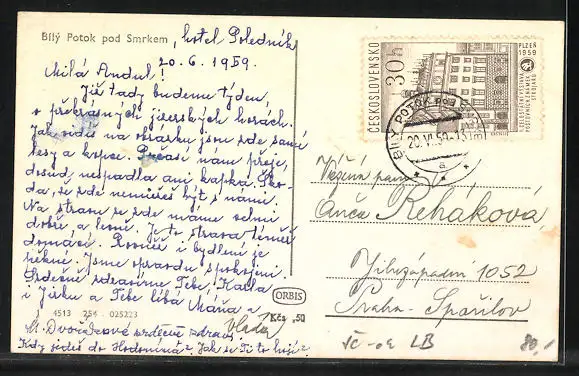 Bílý Potok pod Smrkem, hotel Poledník
20. 6. 1959.
Milá Andul!
Již tady budeme týden
v překrásných jizerských horách.
Jak vidíš na obrázku jsou zde samé
lesy a kopce. Počasí nám přeje,
dosud nespadla ani kapka. Ško-
da, že zde nemůžeš být s námi.
Na stravu se zde máme velmi
dobře, a levně. Je to strava téměř
domácí. Rovněž i bydlení je
pěkné. Jsme opravdu spokojeni.
Srdečně zdravíme Tebe, Karla
i Jirku a Tebe líbá Máňa a
Vláďa
4513 254 025223
Kčs ,50
ORBIS
M. Dvořákové srdečné zdraví
Kdy jedeš do Hodonína? Jak se Ti to hojí?
ČESKOSLOVENSKO
30h
PLZEŇ
1959
CELOSTÁTNÍ VÝSTAVA
POŠTOVNÍCH ZNÁMEK
BÍLÝ POTOK POD
20.VI.59
a
Vážená paní
Anča Řeháková,
Jihozápadní 1052
Praha - Spořilov
LB
80,-